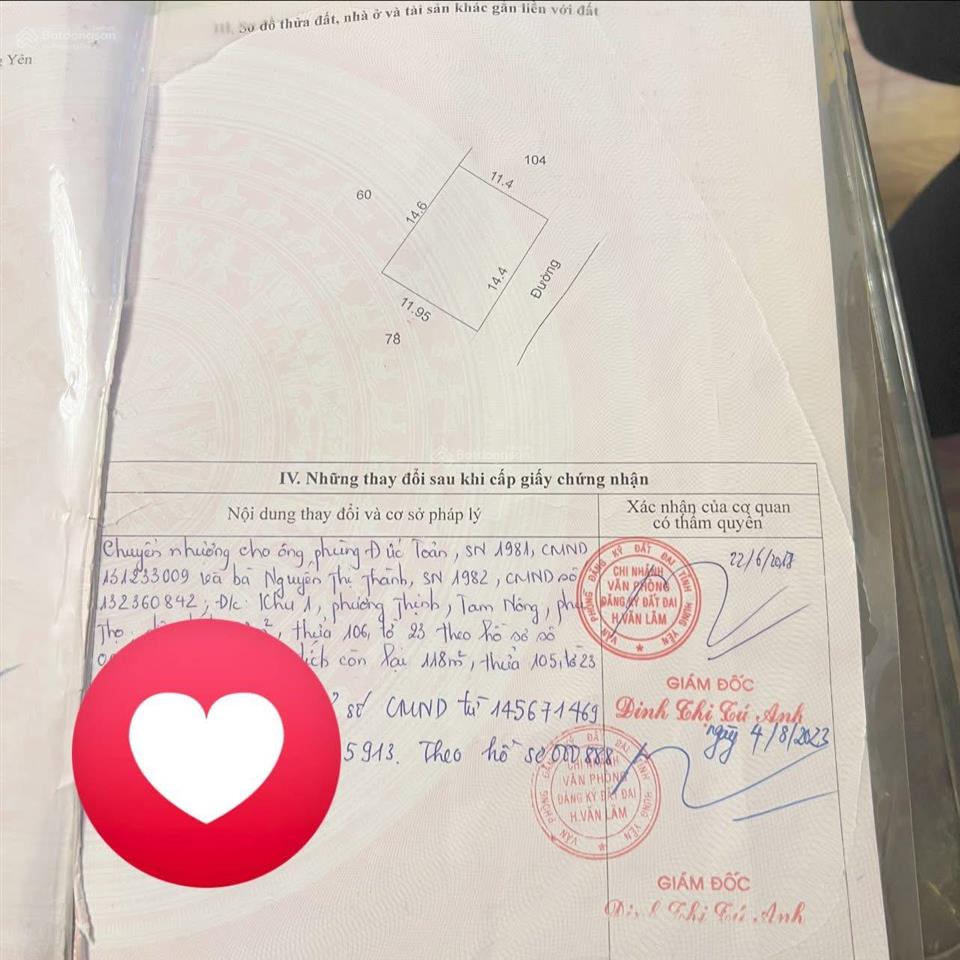 Batdongsan
Yên
III. Sơ đồ thửa đất, nhà ở và tài sản khác gắn liền với đất
104
11.4
60
14.6
14.4
Đường
11.95
78
Batdongsan
IV. Những thay đổi sau khi cấp giấy chứng nhận
Nội dung thay đổi và cơ sở pháp lý
Xác nhận của cơ quan
có thẩm quyền
Chuyển nhượng cho ông phùng Đức Toản, SN 1981, CMND
131233009 và bà Nguyễn Thị Thành, SN 1982, CMND số
132360842; Đ/c: Khu 1, phương Thịnh, Tam Nông, phú
Thọ, thửa 106, tờ 23 theo hồ sơ số
tích còn lại 118m², thửa 105, tờ 23
số CMND từ 145671469
5913. Theo hồ sơ 000888
22/6/2018
VĂN PHÒNG ĐĂNG KÝ ĐẤT ĐAI TỈNH HƯNG YÊN
CHI NHÁNH
VĂN PHÒNG
ĐĂNG KÝ ĐẤT ĐAI
H.VĂN LÂM
GIÁM ĐỐC
Đinh Thị Tú Anh
ngày 4/8/2023
VĂN PHÒNG ĐĂNG KÝ ĐẤT ĐAI TỈNH HƯNG YÊN
CHI NHÁNH
VĂN PHÒNG
ĐĂNG KÝ ĐẤT ĐAI
H.VĂN LÂM
GIÁM ĐỐC
Đinh Thị Tú Anh